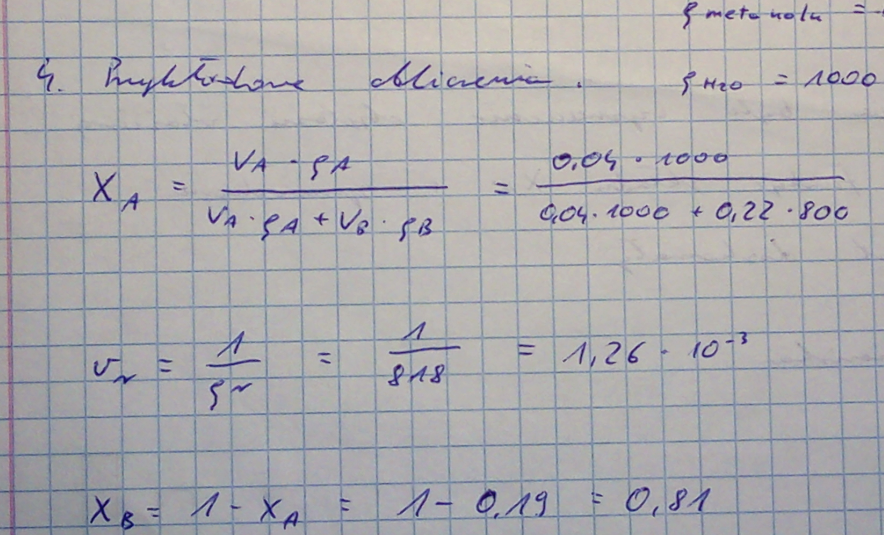 ρ metanolu =
4. Przykładowe obliczenia.
ρ H2O = 1000
X_A = (V_A · ρ_A) / (V_A · ρ_A + V_B · ρ_B) = (0,04 · 1000) / (0,04 · 1000 + 0,22 · 800)
v_r = 1 / ρ_r = 1 / 818 = 1,26 · 10^-3
X_B = 1 - X_A = 1 - 0,19 = 0,81